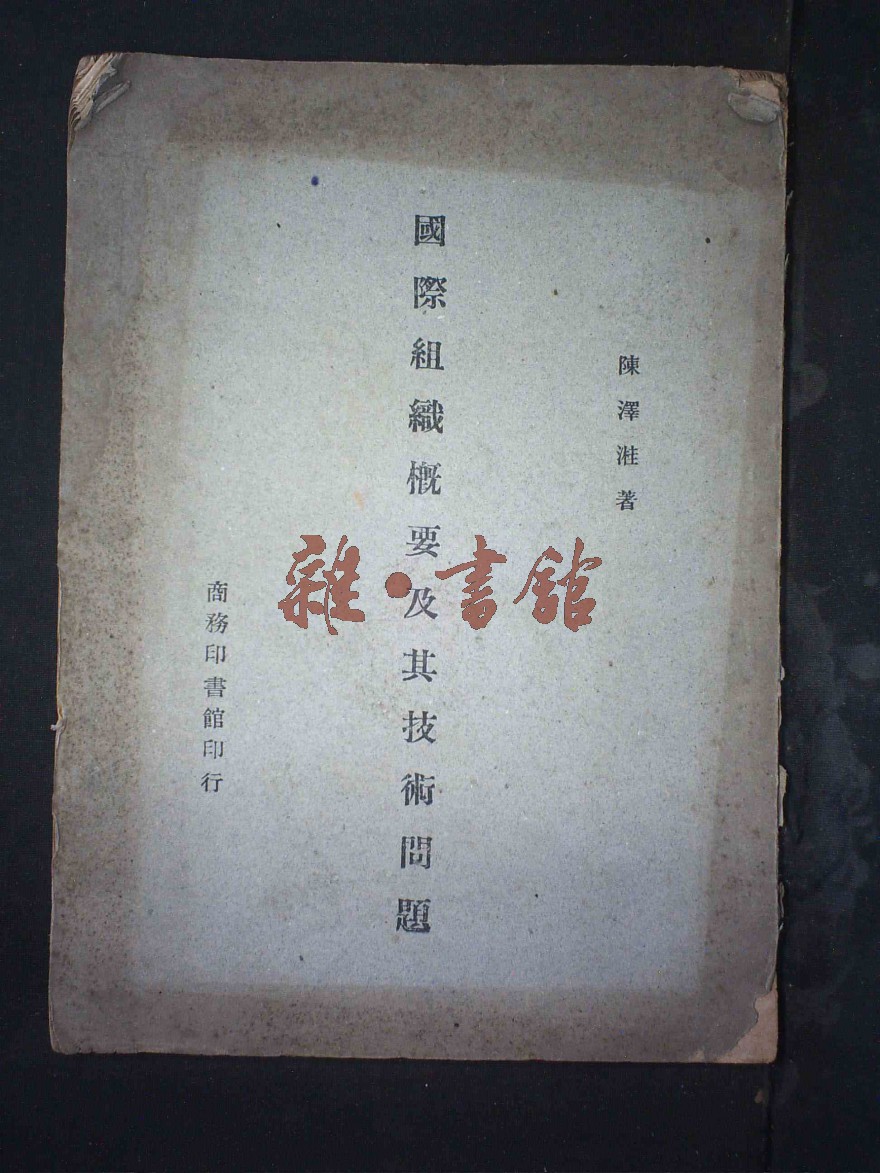 陳澤溎著
國際組織概要及其技術問題
商務印書館印行
雜·書館